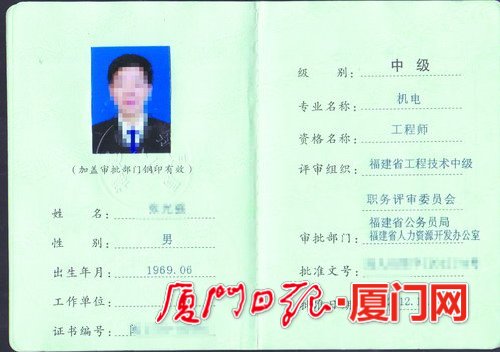 (加盖审批部门钢印有效)
姓 名:
性 别: 男
出生年月: 1969.06
工作单位:
证书编号:
级 别: 中 级
专业名称: 机电
资格名称: 工程师
评审组织: 福建省工程技术中级
职务评审委员会
审批部门: 福建省公务员局
福建省人力资源开发办公室
批准文号:
批准日期: 12.1
厦门日报·厦门网